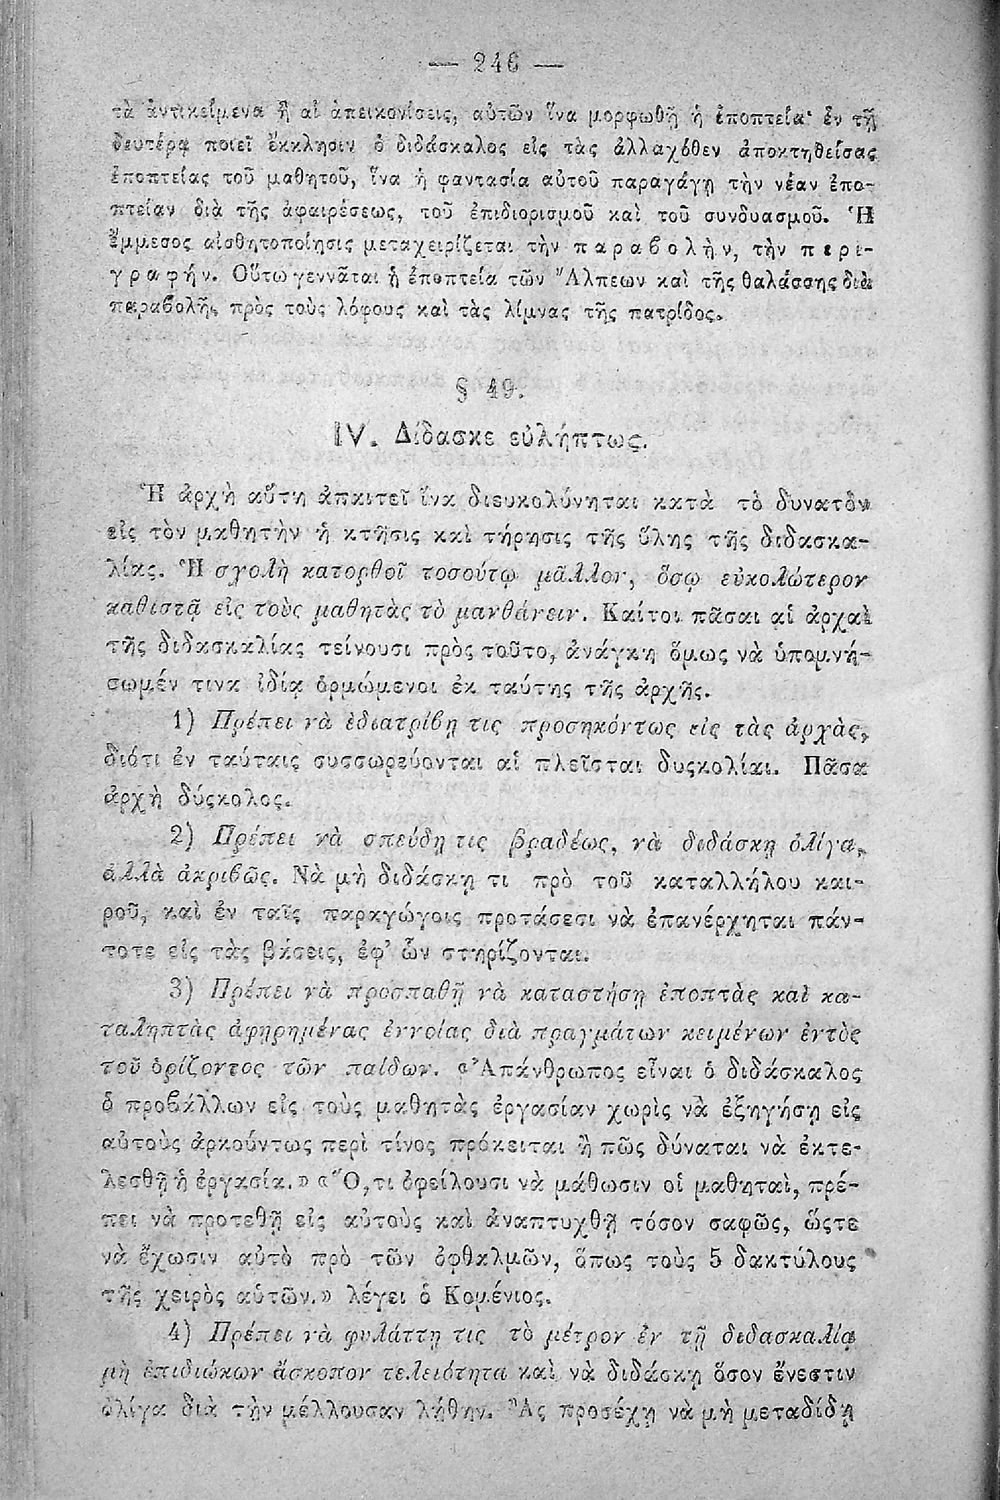 — 246 —
τὰ ἀντικείμενα ἢ αἱ ἀπεικονίσεις, αὐτῶν ἵνα μορφωθῇ ἡ ἐποπτεία· ἐν τῇ
δευτέρᾳ ποιεῖ ἔκκλησιν ὁ διδάσκαλος εἰς τὰς ἀλλαχόθεν ἀποκτηθείσας
ἐποπτείας τοῦ μαθητοῦ, ἵνα ἡ φαντασία αὐτοῦ παραγάγῃ τὴν νέαν ἐπο-
πτείαν διὰ τῆς ἀφαιρέσεως, τοῦ ἐπιδιορισμοῦ καὶ τοῦ συνδυασμοῦ. Ἡ
ἔμμεσος αἰσθητοποίησις μεταχειρίζεται τὴν παραβολὴν, τὴν περι-
γραφήν. Οὕτω γεννᾶται ἡ ἐποπτεία τῶν Ἄλπεων καὶ τῆς θαλάσσης διὰ
παραβολῆς πρὸς τοὺς λόφους καὶ τὰς λίμνας τῆς πατρίδος.
§ 49.
IV. Δίδασκε εὐλήπτως.
Ἡ ἀρχὴ αὕτη ἀπαιτεῖ ἵνα διευκολύνηται κατὰ τὸ δυνατὸν
εἰς τὸν μαθητὴν ἡ κτῆσις καὶ τήρησις τῆς ὕλης τῆς διδασκα-
λίας. Ἡ σχολὴ κατορθοῖ τοσούτῳ μᾶλλον, ὅσῳ εὐκολώτερον
καθιστᾷ εἰς τοὺς μαθητὰς τὸ μανθάνειν. Καίτοι πᾶσαι αἱ ἀρχαὶ
τῆς διδασκαλίας τείνουσι πρὸς τοῦτο, ἀνάγκη ὅμως νὰ ὑπομνή-
σωμέν τινα ἰδίᾳ ὁρμώμενοι ἐκ ταύτης τῆς ἀρχῆς.
1) Πρέπει νὰ ἐδιατρίβῃ τις προσηκόντως εἰς τὰς ἀρχὰς,
διότι ἐν ταύταις συσσωρεύονται αἱ πλεῖσται δυσκολίαι. Πᾶσα
ἀρχὴ δύσκολος.
2) Πρέπει νὰ σπεύδῃ τις βραδέως, νὰ διδάσκῃ ὀλίγα,
ἀλλὰ ἀκριβῶς. Νὰ μὴ διδάσκῃ τι πρὸ τοῦ καταλλήλου και-
ροῦ, καὶ ἐν ταῖς παραγώγοις προτάσεσι νὰ ἐπανέρχηται πάν-
τοτε εἰς τὰς βάσεις, ἐφ' ὧν στηρίζονται.
3) Πρέπει νὰ προσπαθῇ νὰ καταστήσῃ ἐποπτὰς καὶ κα-
ταληπτὰς ἀφῃρημένας ἐννοίας διὰ πραγμάτων κειμένων ἐντὸς
τοῦ ὁρίζοντος τῶν παίδων. «Ἀπάνθρωπος εἶναι ὁ διδάσκαλος
ὁ προβάλλων εἰς τοὺς μαθητὰς ἐργασίαν χωρὶς νὰ ἐξηγήσῃ εἰς
αὐτοὺς ἀρκούντως περὶ τίνος πρόκειται ἢ πῶς δύναται νὰ ἐκτε-
λεσθῇ ἡ ἐργασία.» «Ὅ,τι ὀφείλουσι νὰ μάθωσιν οἱ μαθηταὶ, πρέ-
πει νὰ προτεθῇ εἰς αὐτοὺς καὶ ἀναπτυχθῇ τόσον σαφῶς, ὥςτε
νὰ ἔχωσιν αὐτὸ πρὸ τῶν ὀφθαλμῶν, ὅπως τοὺς 5 δακτύλους
τῆς χειρὸς αὑτῶν.» λέγει ὁ Κομένιος.
4) Πρέπει νὰ φυλάττῃ τις τὸ μέτρον ἐν τῇ διδασκαλίᾳ
μὴ ἐπιδιώκων ἄσκοπον τελειότητα καὶ νὰ διδάσκῃ ὅσον ἔνεστιν
ὀλίγα διὰ τὴν μέλλουσαν λήθην. Ἂς προσέχῃ νὰ μὴ μεταδίδῃ